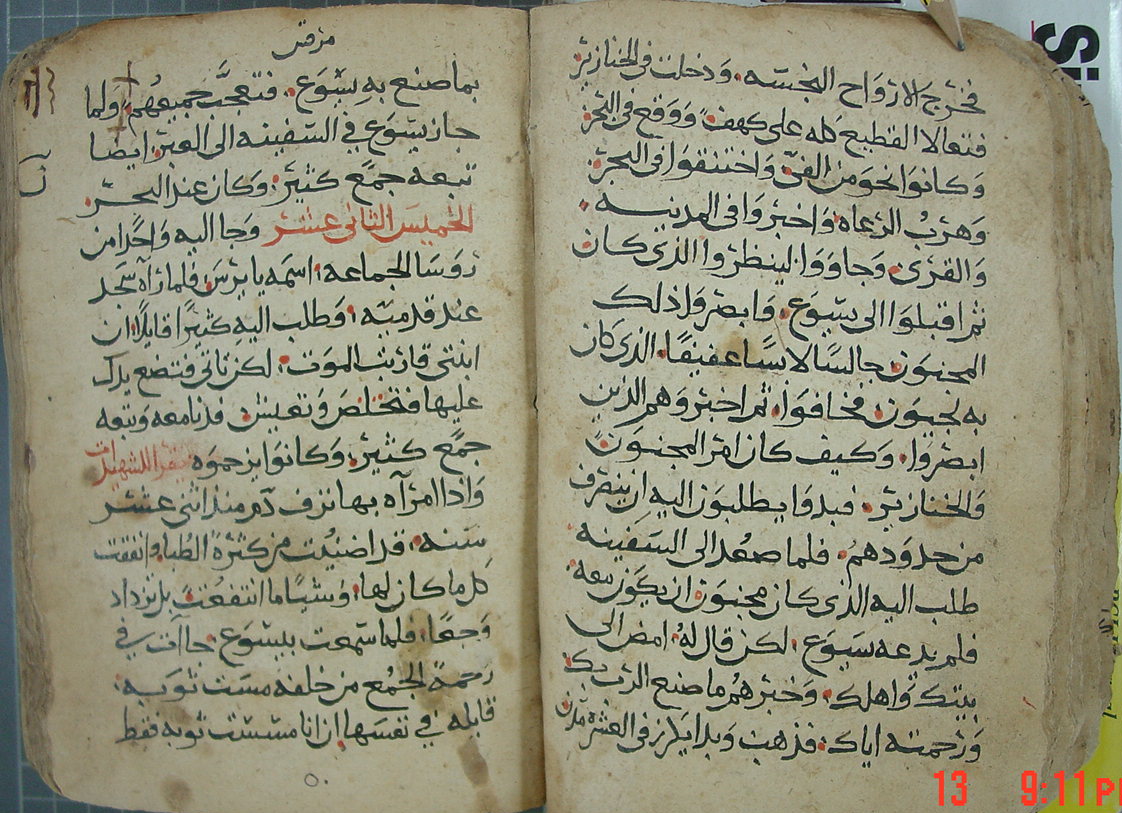 فخرج الارواح النجسه. ودخلت في الخنازير
فتعالا القطيع كله على كهف. ووقع في البحر
وكانوا نحو من الفي. واختنقوا في البحر.
وهرب الرعاه. واخبروا في المدينه.
والقرى. وجاووا لينظروا الذي كان
ثم اقبلوا الى يسوع. وابصروا ذلك
المجنون. جالسًا لابسًا عفيفًا. الذي كان
به لجيون. فخافوا. ثم اخبروهم الذين
ابصروا. وكيف كان امر المجنون.
والخنازير. فبدوا يطلبون اليه ان ينصرف
من حدودهم. فلما صعد الى السفينه
طلب اليه الذي كان مجنون ان يكون معه.
فلم يدعه يسوع. لكن قال له. امض الى
بيتك واهلك. وخبرهم ما صنع الرب بك.
ورحمته اياك. فذهب وبدا يكرز في العشره مدن
مرقس
بما صنع به يسوع. فتعجب جميعهم. ولما
جاز يسوع في السفينه الى العبر ايضا
تبعه جمع كثير. وكان عند البحر.
الخميس الثاني عشر وجا اليه واحدا من
روسا الجماعه. اسمه يايرس. فلما رآه سجد
عند قدميه. وطلب اليه كثيرًا قايلا. ان
ابنتي قاربت الموت. لكن تاتي فتضع يدك
عليها فتخلص وتعيش. فدنا معه وتبعه
جمع كثير. وكانوا يزحموه يقرا للشهيدات
واذا امراه بها نزف دم منذ اثني عشر
سنه. قد اضنيت من كثرة الطبا. وانفقت
كل ما كان لها. وشيا ما انتفعت بل تزداد
وجعًا. فلما سمعت بيسوع. جاات في
زحمة الجمع من خلفه مست ثوبه.
قايله في نفسها ان انا مسست ثوبه فقط
13 9:11 P